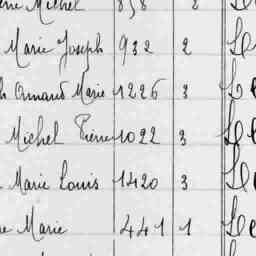 Michel 858 2
Marie Joseph 932 2 Le
Armand Marie 1226 3 Le
Michel Pierre 1022 3 Le
Marie Louis 1420 3 Le
Marie 441 1 Le